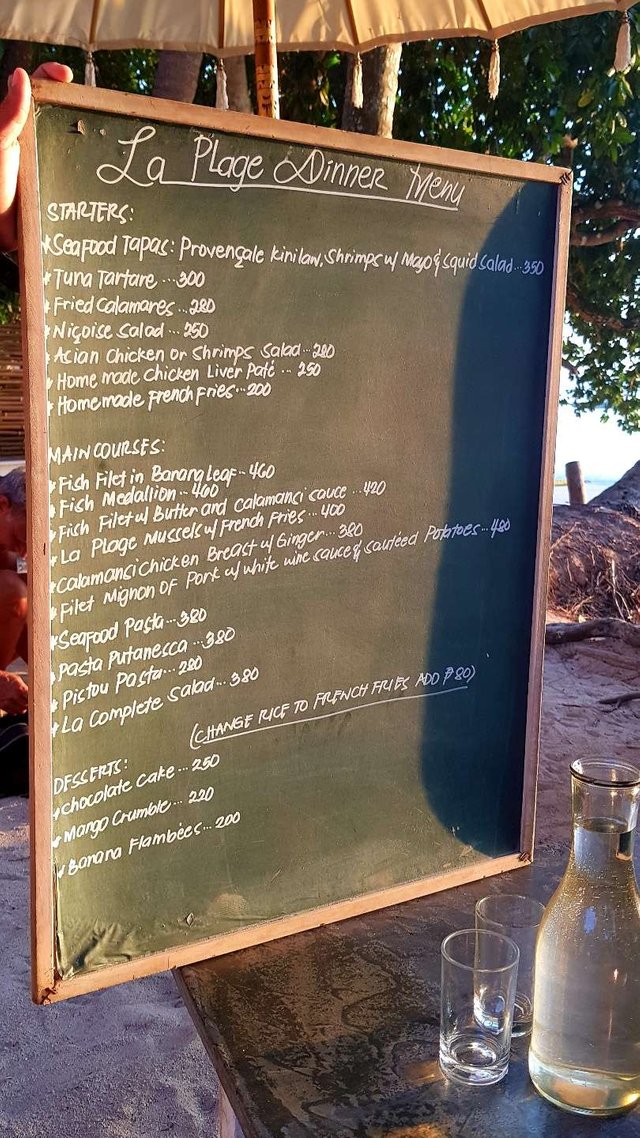 La Plage Dinner Menu
STARTERS:
*Seafood Tapas: Provençale kinilaw, Shrimps w/ Mayo & Squid Salad...350
*Tuna Tartare...300
*Fried Calamares...280
*Niçoise Salad...250
*Asian Chicken or Shrimps Salad...280
*Home made Chicken Liver Paté...250
*Homemade French Fries...200
MAIN COURSES:
*Fish Filet in Banana Leaf...460
*Fish Medallion...460
*Fish Filet w/ Butter and Calamansi sauce...420
*La Plage Mussels w/ French Fries...400
*Calamansi Chicken Breast w/ Ginger...380
*Filet Mignon OF Pork w/ white wine sauce & sautéed Potatoes...480
*Seafood Pasta...380
*Pasta Putanesca...380
*Pistou Pasta...280
*La Complete Salad...380
(CHANGE RICE TO FRENCH FRIES ADD ₱80)
DESSERTS:
*Chocolate Cake...250
*Mango Crumble...220
*Banana Flambées...200